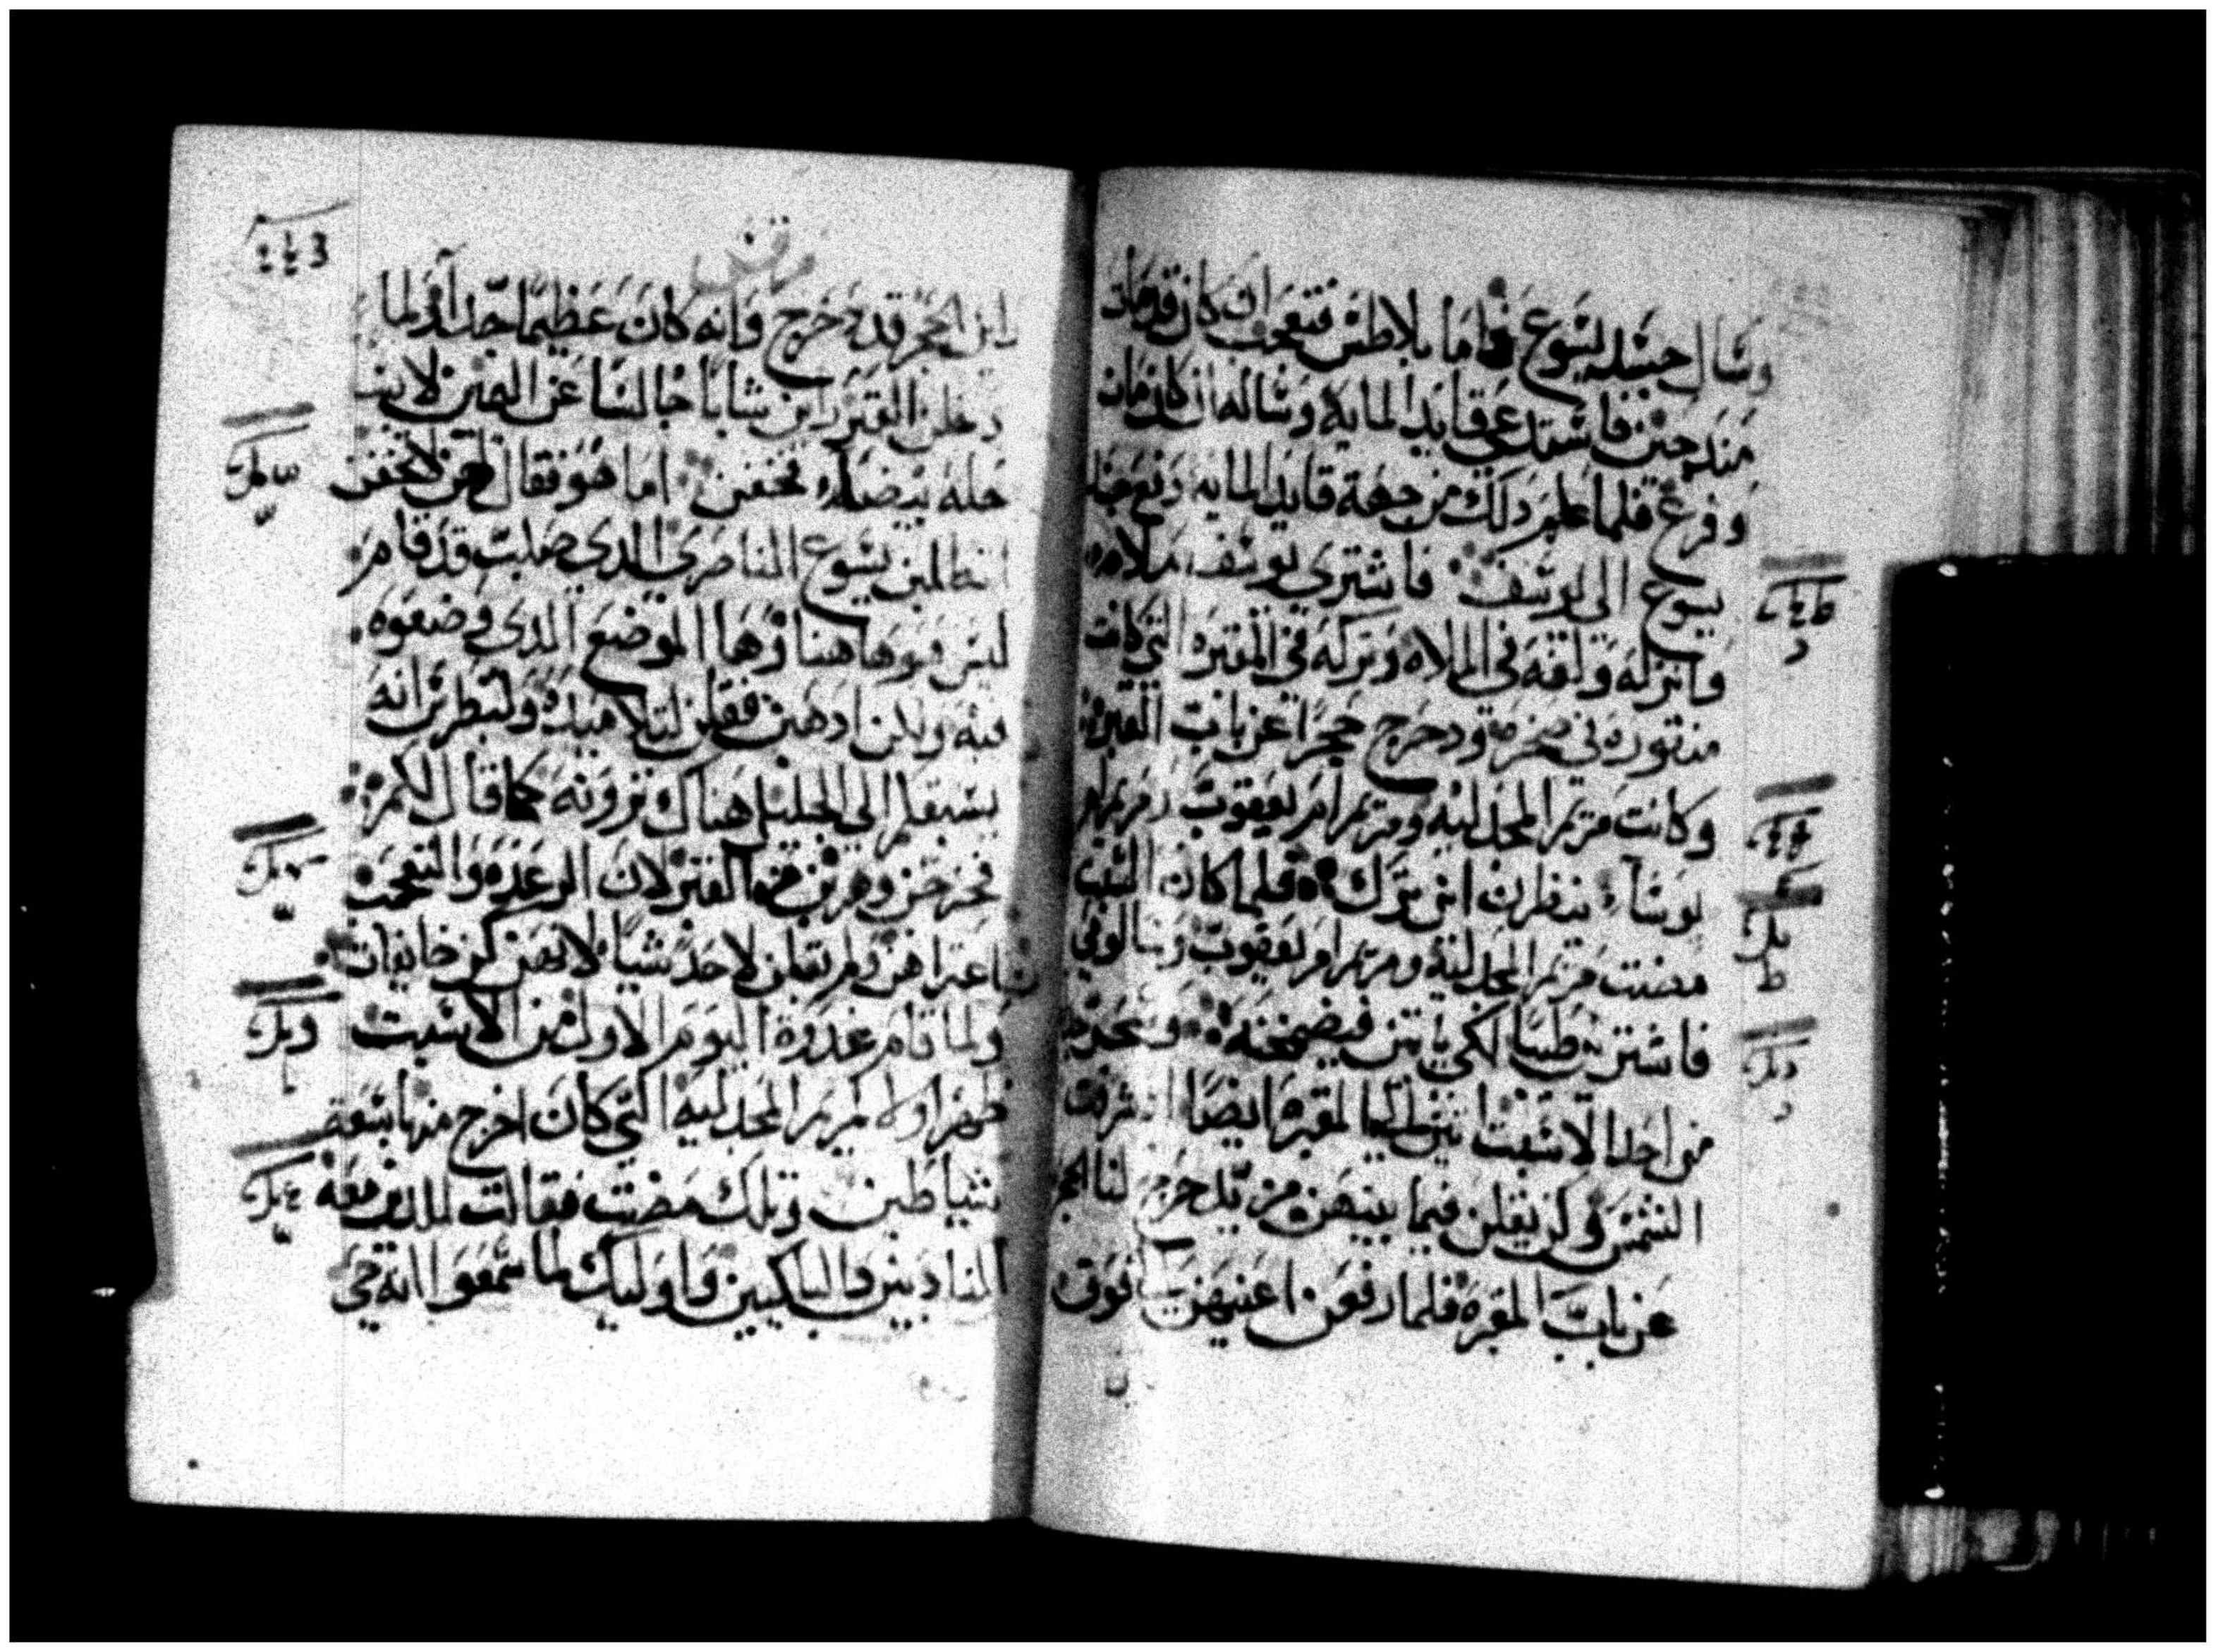 وسال جسد يسوع فاما بلاطس فتعجب ان كان قد مات
منذ حين فاستدعى قايد المايه وساله ان كان قد مات
وفرغ فلما علم ذلك من جهة قايد المايه دفع جسد
يسوع الى يوسف فاشترى يوسف ملاه
وانزله ولفه في الملاه وتركه في المقبره التي كانت
منقوره في صخرة ودحرج حجرا عن باب القبر
وكانت مريم المجدليه ومريم ام يعقوب ومريم ام
يوسا ينظرن اين ترك فلما كان السبت
مضت مريم المجدلية ومريم ام يعقوب وسالومي
فاشترين طيبا لكي ياتين فيضمخنه
في احد الاسبت اتين الى المقبره ايضا اذ شرقت
الشمس وكن يقلن فيما بينهن من يدحرج لنا الحجر
عن باب المقبره فلما رفعن اعينهن فوق
راين الحجر قد دحرج وانه كان عظيما جدا ولما
دخلن القبر راين شابا جالسا عن اليمين لابس
حله بيضاء فخفن اما هو فقال لهن لا تخفن
اتطلبن يسوع الناصري الذي صلب قد قام
ليس هو هاهنا وها الموضع الذي وضعوه
فيه ولكن اذهبن فقلن لتلاميذه ولبطرس انه
يسبقكم الى الجليل هناك ترونه كما قال لكم
فخرجن وهربن من القبر لان الرعده والتعجب
اعتراهن ولم يقلن لاحد شيا لانهن كن خايفات
ولما قام غدوة اليوم الاول من الاسبت
ظهر اولا لمريم المجدليه التي كان اخرج منها سبعة
شياطين وتلك مضت فقالت للذين معه
النادبين والباكيين واوليك لما سمعوا انه حي